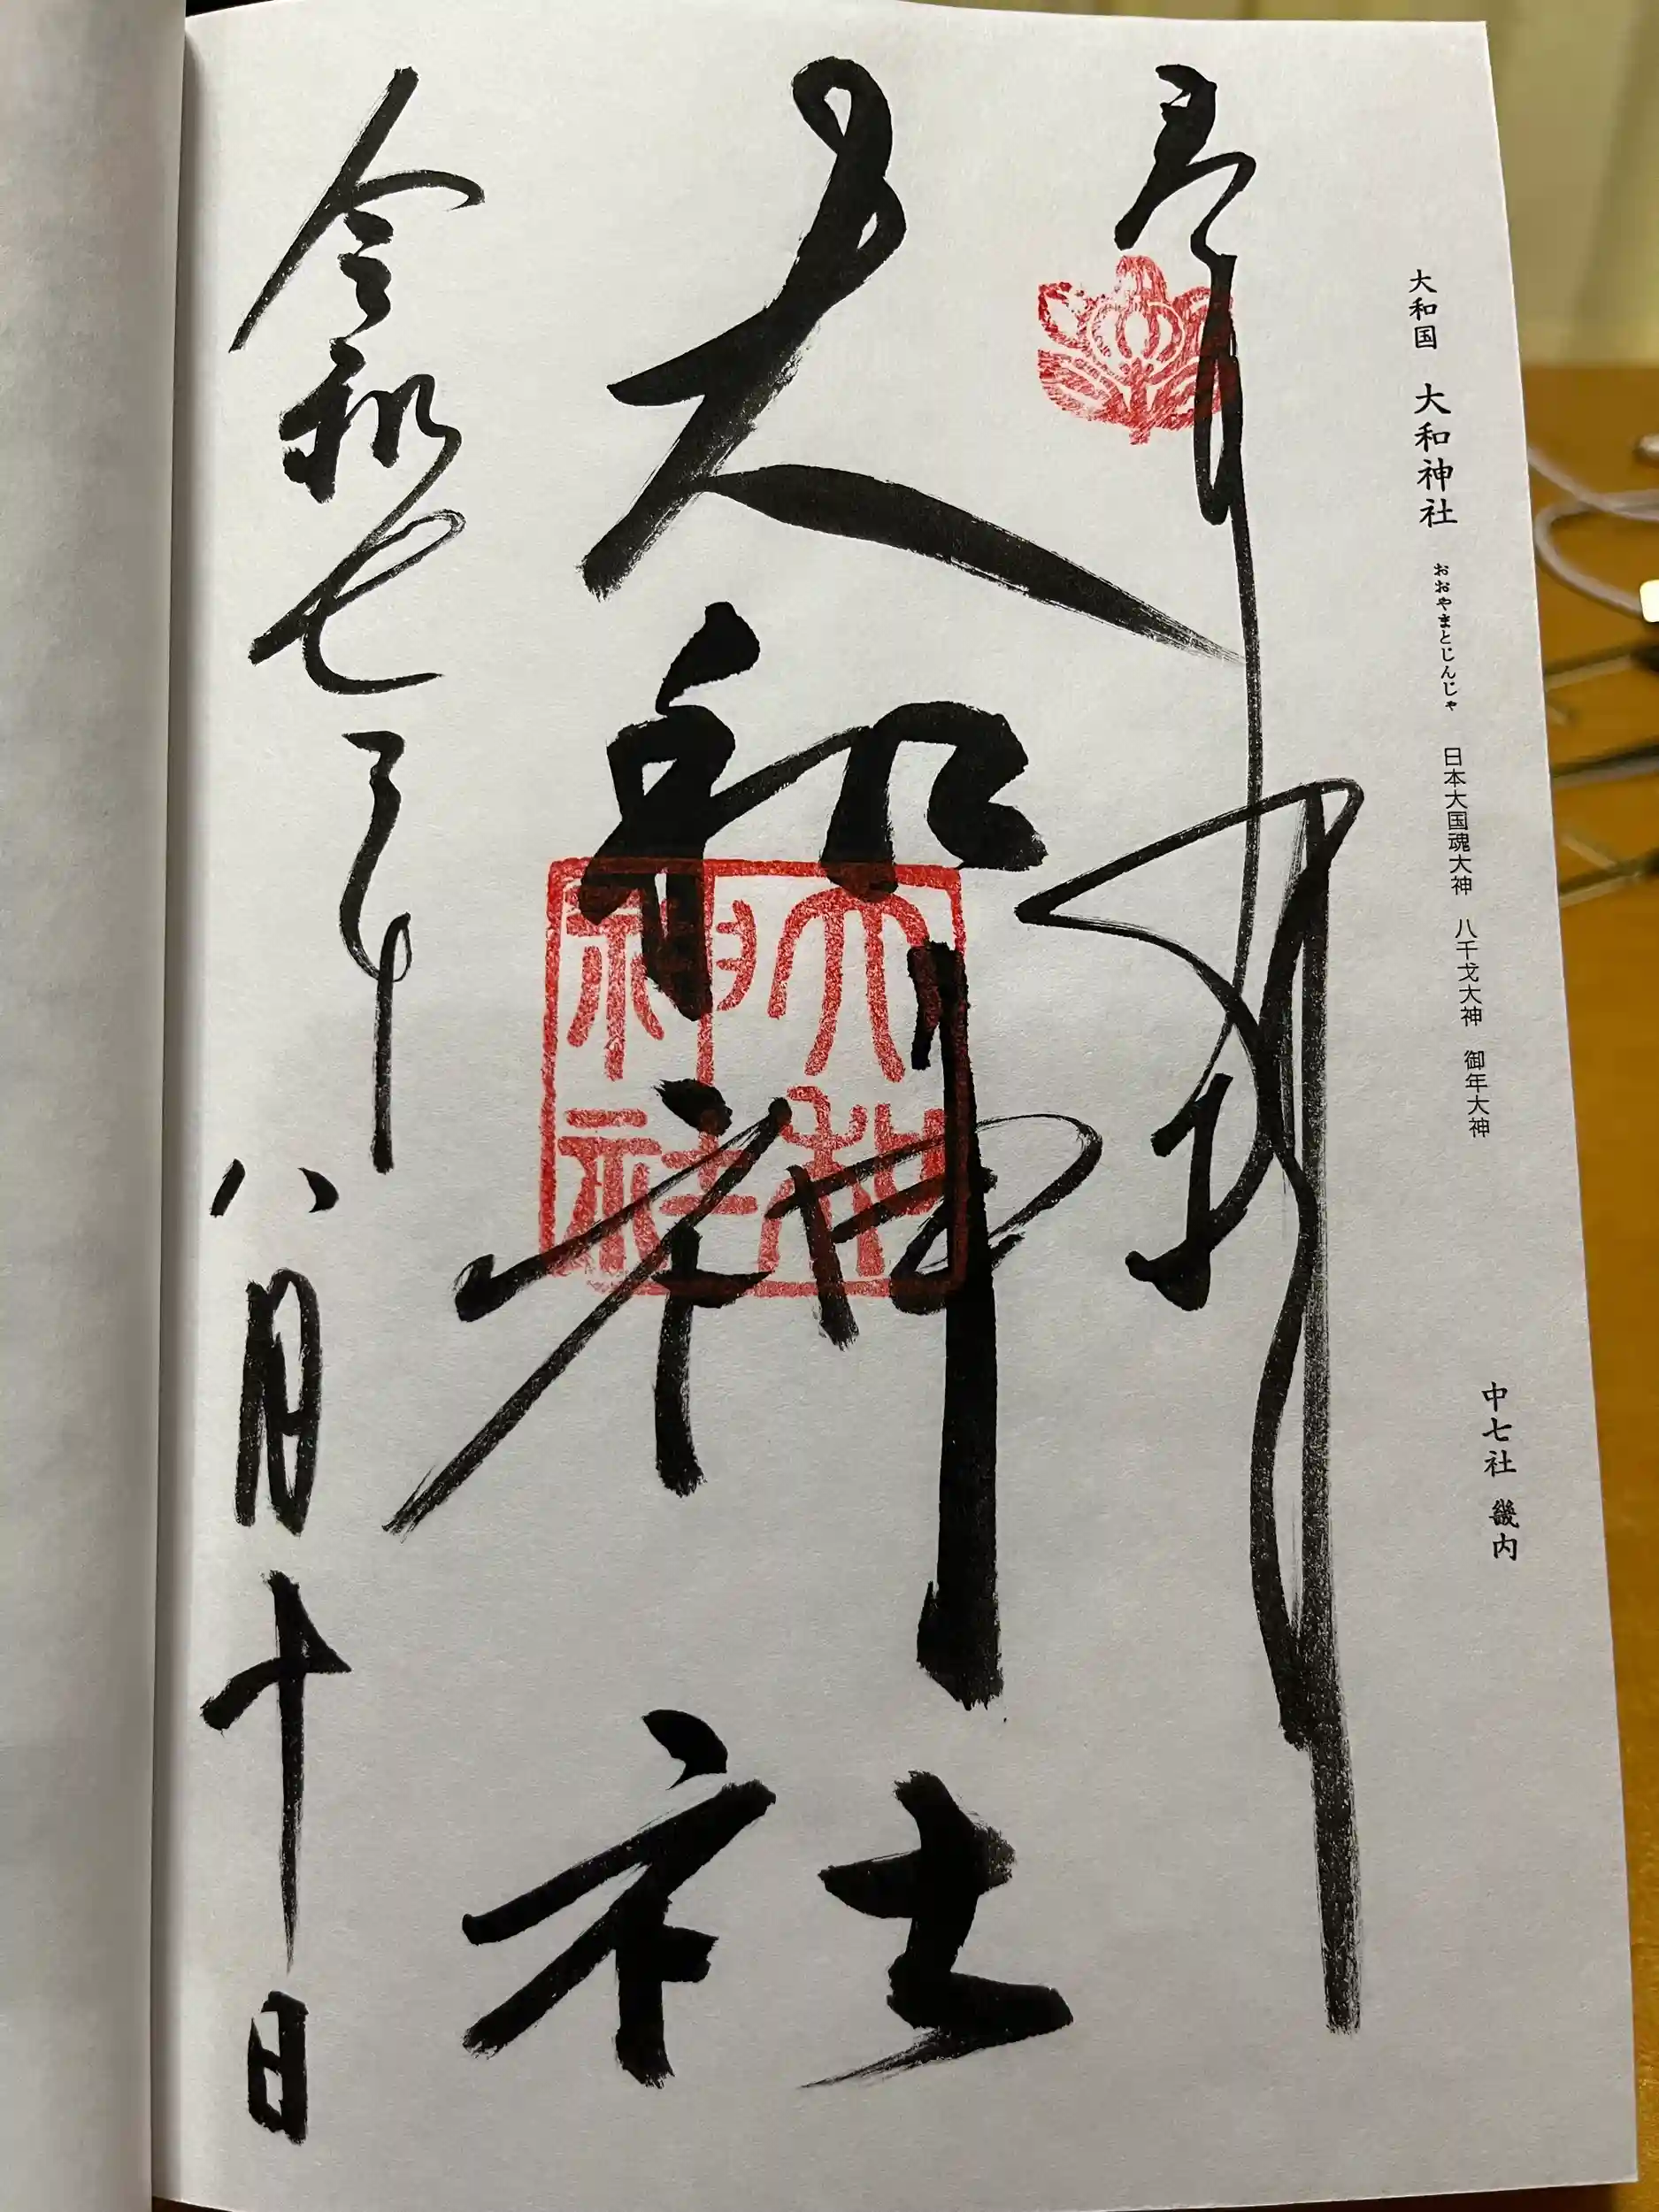 大和国　大和神社　おおやまとじんじゃ　日本大国魂大神　八千戈大神　御年大神　中七社　畿内
奉拝
大和神社
大和神社
令和七年八月十日